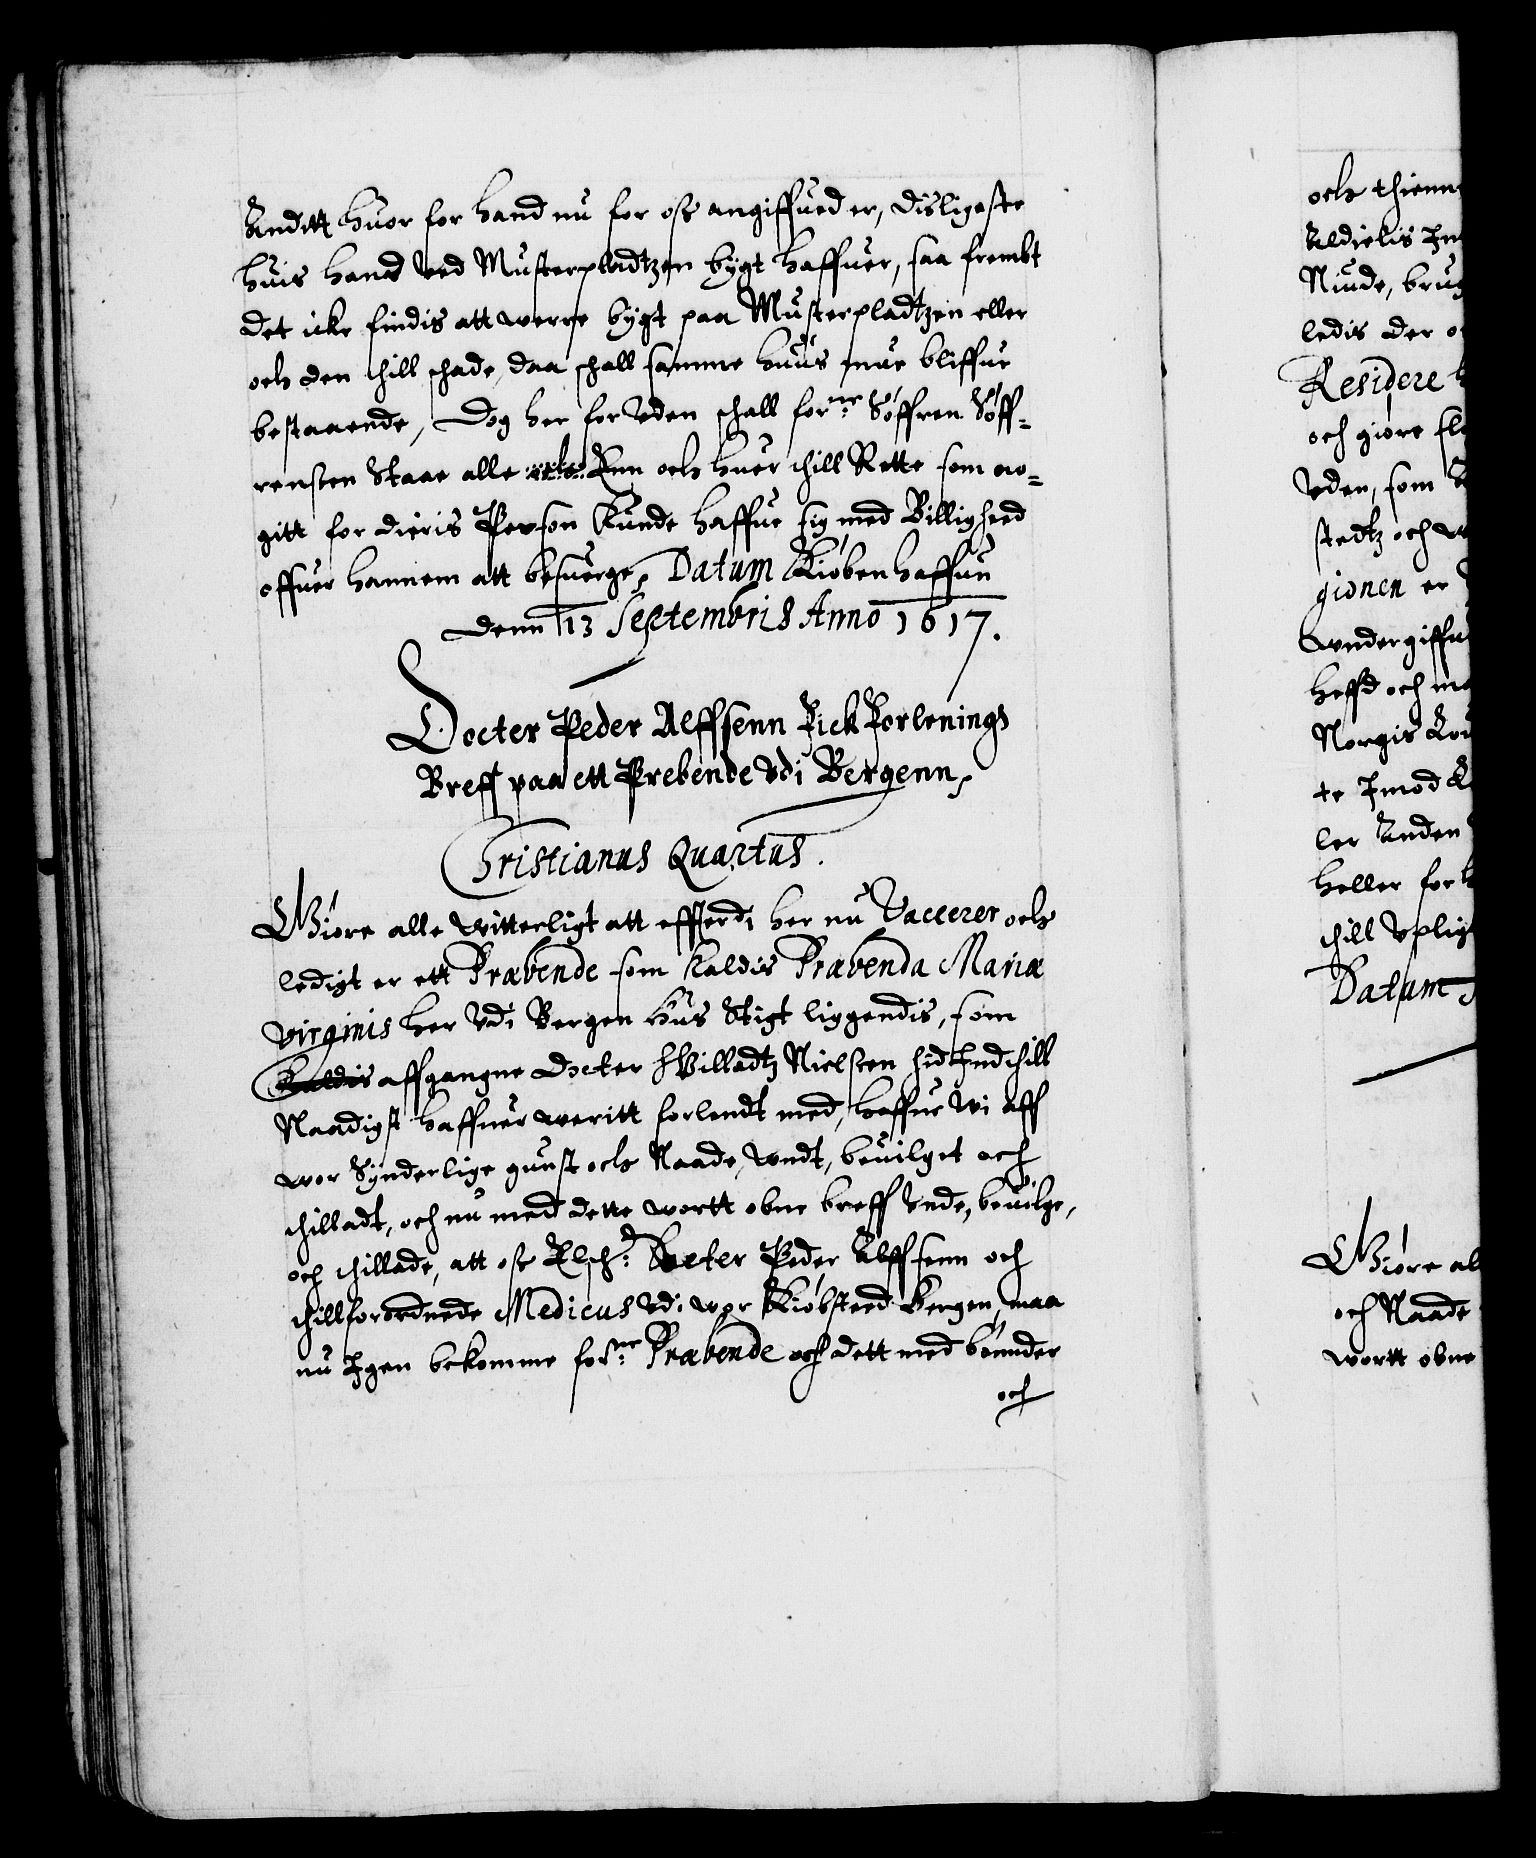 Anditt huor for hand nu for oss angiffued er, disligeste
huis hand ved Musterpladtzen bygt haffuer, saa frembt
det icke findis att werre bygt paa Musterpladtzen eller
och den thill schade, daa schall samme huus mue bliffue
bestaaende, Dog her foruden schall forne Søffren Søff-
rensen Staae alle Enn och huer thill Rette som no-
gitt for dieris Person kunde haffue sig med Billighed
offuer hannem att besuerge, Datum Kiøbenhaffun
Denn 13 Septembris Anno 1617.
Docter Peder Alffsenn Fick Forlenings
Breff paa ett Prebende Udi Bergenn,
Christianus Quartus.
Giøre alle witterligt att effterdi her nu Vaccerer och
ledigt er ett Præbende som kaldis Præbenda Mariæ
virginis her udi Bergen hus Stigt liggendis, som
Kaldis affgangne Docter Villadtz Nielssen hid Indthill
Naadigst haffuer weritt forlendt med, haffue wi aff
wor Synderlige gunst och Naade, wndt, beuilget och
thilladt, och nu med dette wortt obne breff Unde, beuilge,
och thillade, att oss Elsch: Docter Peder Alffsenn och
thillforordnede Medicus Udi wor Kiøbsteed Bergen, maa
nu Igen bekomme forne Præbende och dett med bønder
och
och thienn
Aldielis In
Niude, brug
ledis der o
Residere
och giøre
Uden, som
stedtz och
gionen er
wndergiffu
heffd och
Norgis
te Imod
ler Anden
heller for
thill Uplig
Datum
Giøre al
och Naade
wortt obne